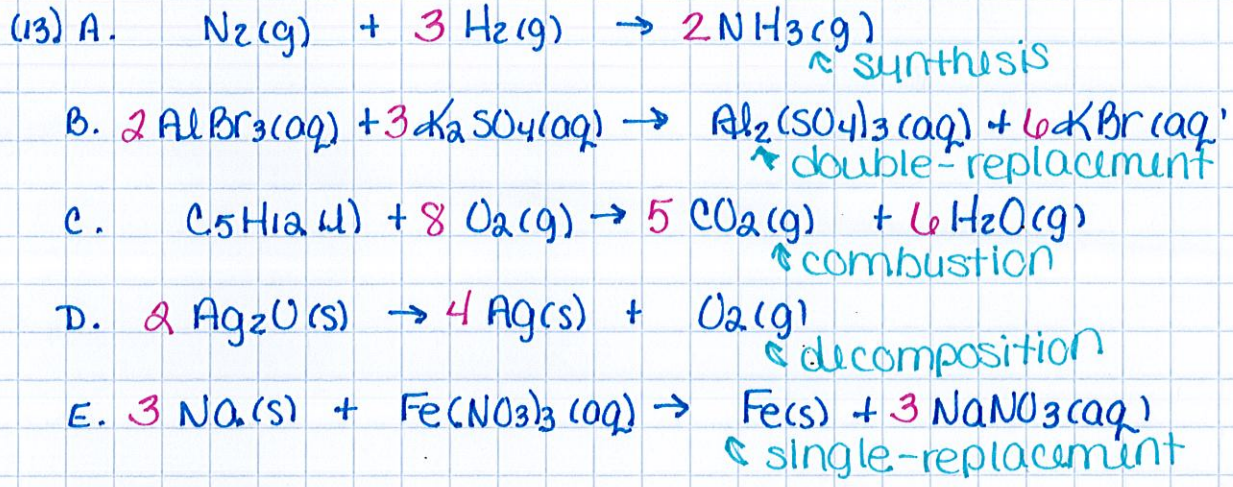 (13) A. N2(g) + 3 H2(g) → 2NH3(g)
↖ synthesis
B. 2 AlBr3(aq) + 3 K2SO4(aq) → Al2(SO4)3(aq) + 6KBr(aq)
↖ double-replacement
C. C5H12(l) + 8 O2(g) → 5 CO2(g) + 6 H2O(g)
↖ combustion
D. 2 Ag2O(s) → 4 Ag(s) + O2(g)
↖ decomposition
E. 3 Na(s) + Fe(NO3)3(aq) → Fe(s) + 3 NaNO3(aq)
↖ single-replacement